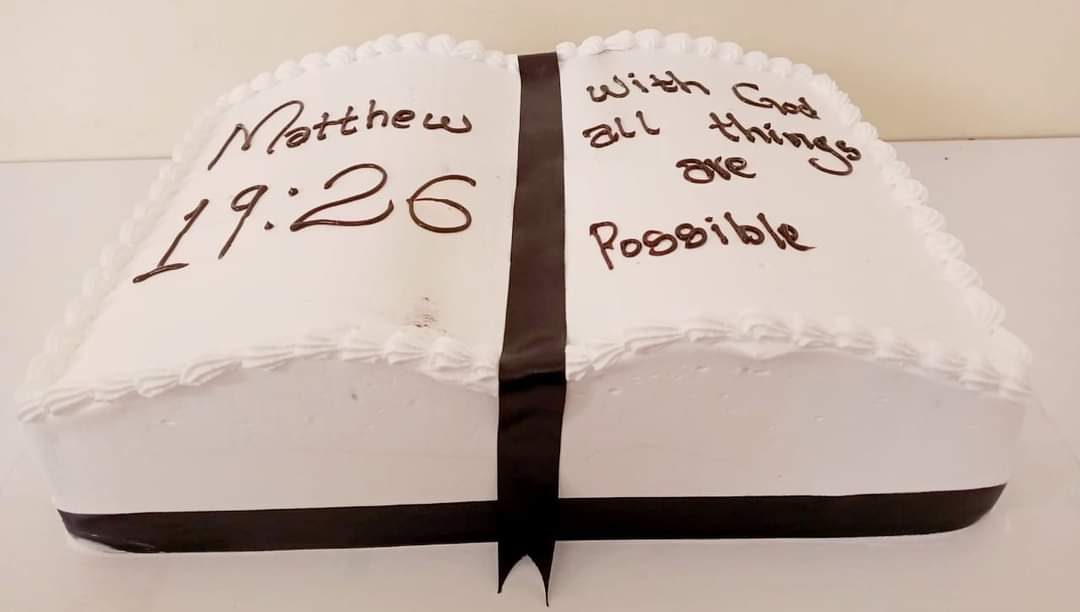 Matthew
19:26
With God
all things
are
Possible